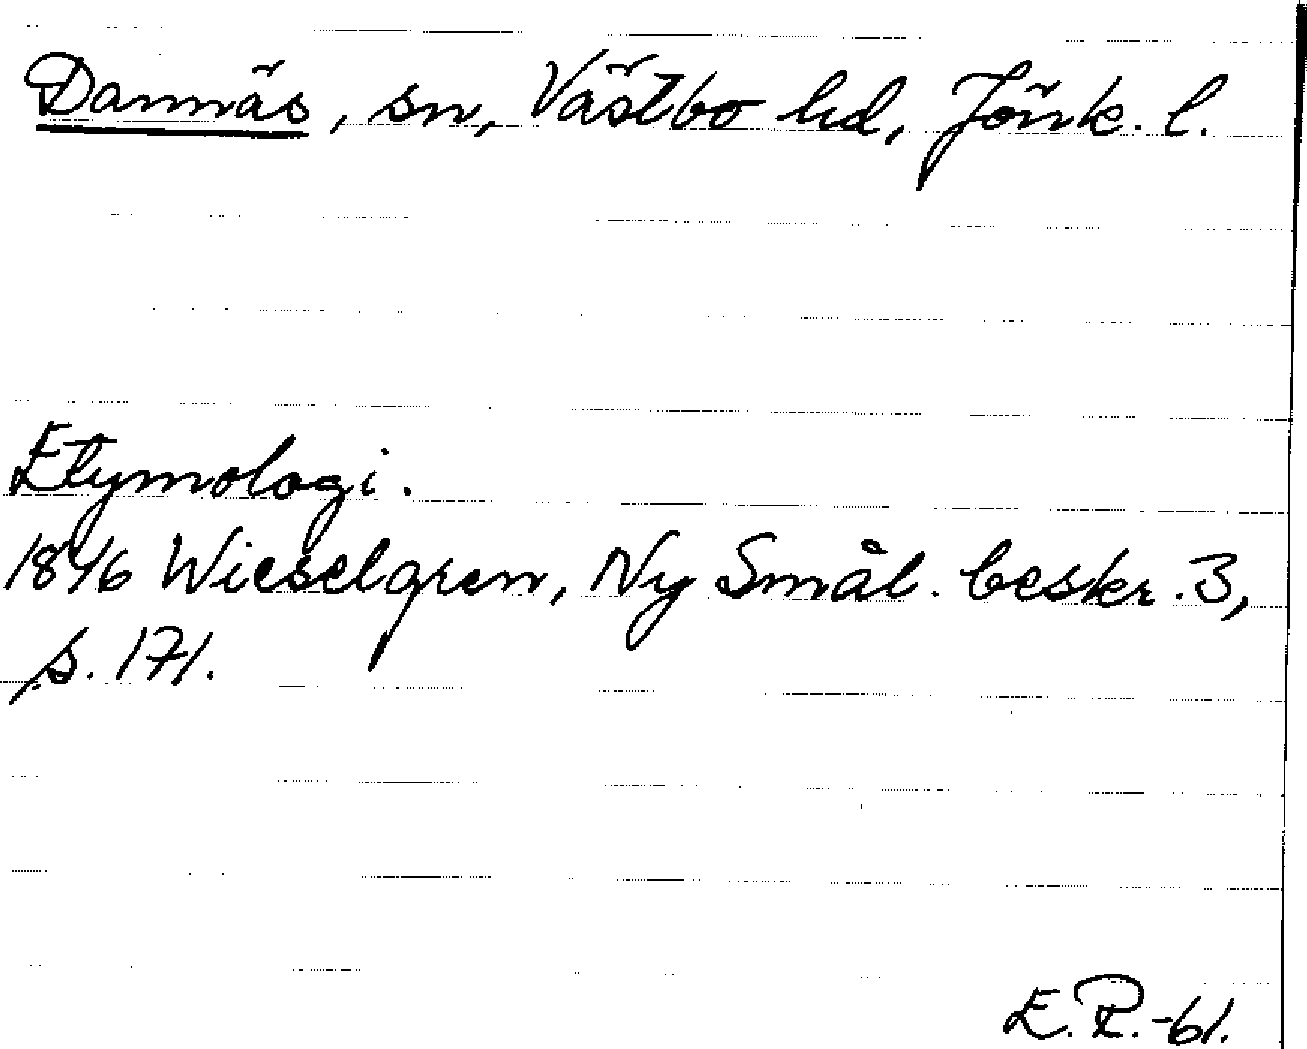 Dannäs, sn, Västbo hd, Jönk. l.
Etymologi.
1846 Wieselgren, Ny Smål. beskr. 3,
s. 171.
E. R. -61.